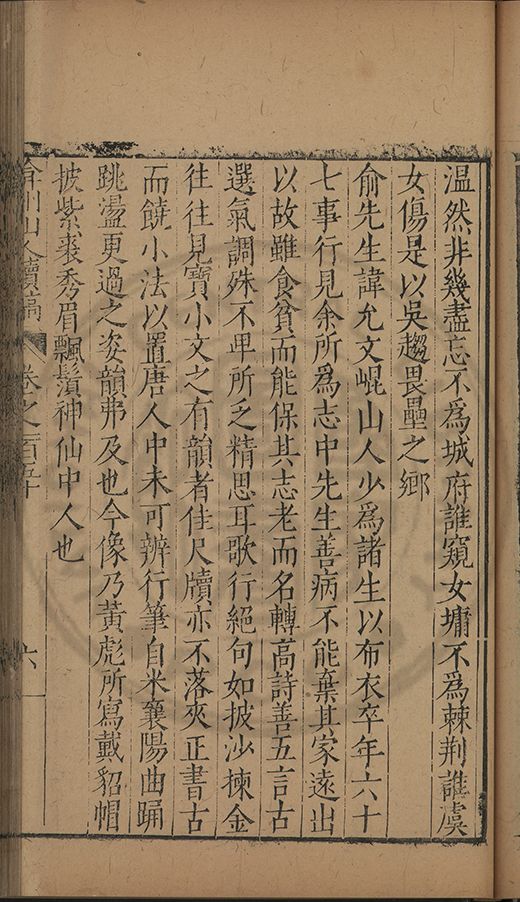 温然非幾盡忘不為城府誰窺女墉不為棘荆誰虞
女傷是以吳趨畏壘之鄉
俞先生諱允文崐山人少為諸生以布衣卒年六十
七事行見余所為志中先生善病不能棄其家遠出
以故雖食貧而能保其志老而名轉高詩善五言古
選氣調殊不卑所乏精思耳歌行絕句如披沙揀金
往往見寶小文之有韻者佳尺牘亦不落夾正書古
而饒小法以置唐人中未可辨行筆自米襄陽曲踊
跳盪更過之姿韻弗及也今像乃黃彪所寫戴貂帽
披紫裘秀眉飄鬚神仙中人也
弇州山人續稿 卷之一百五十 六